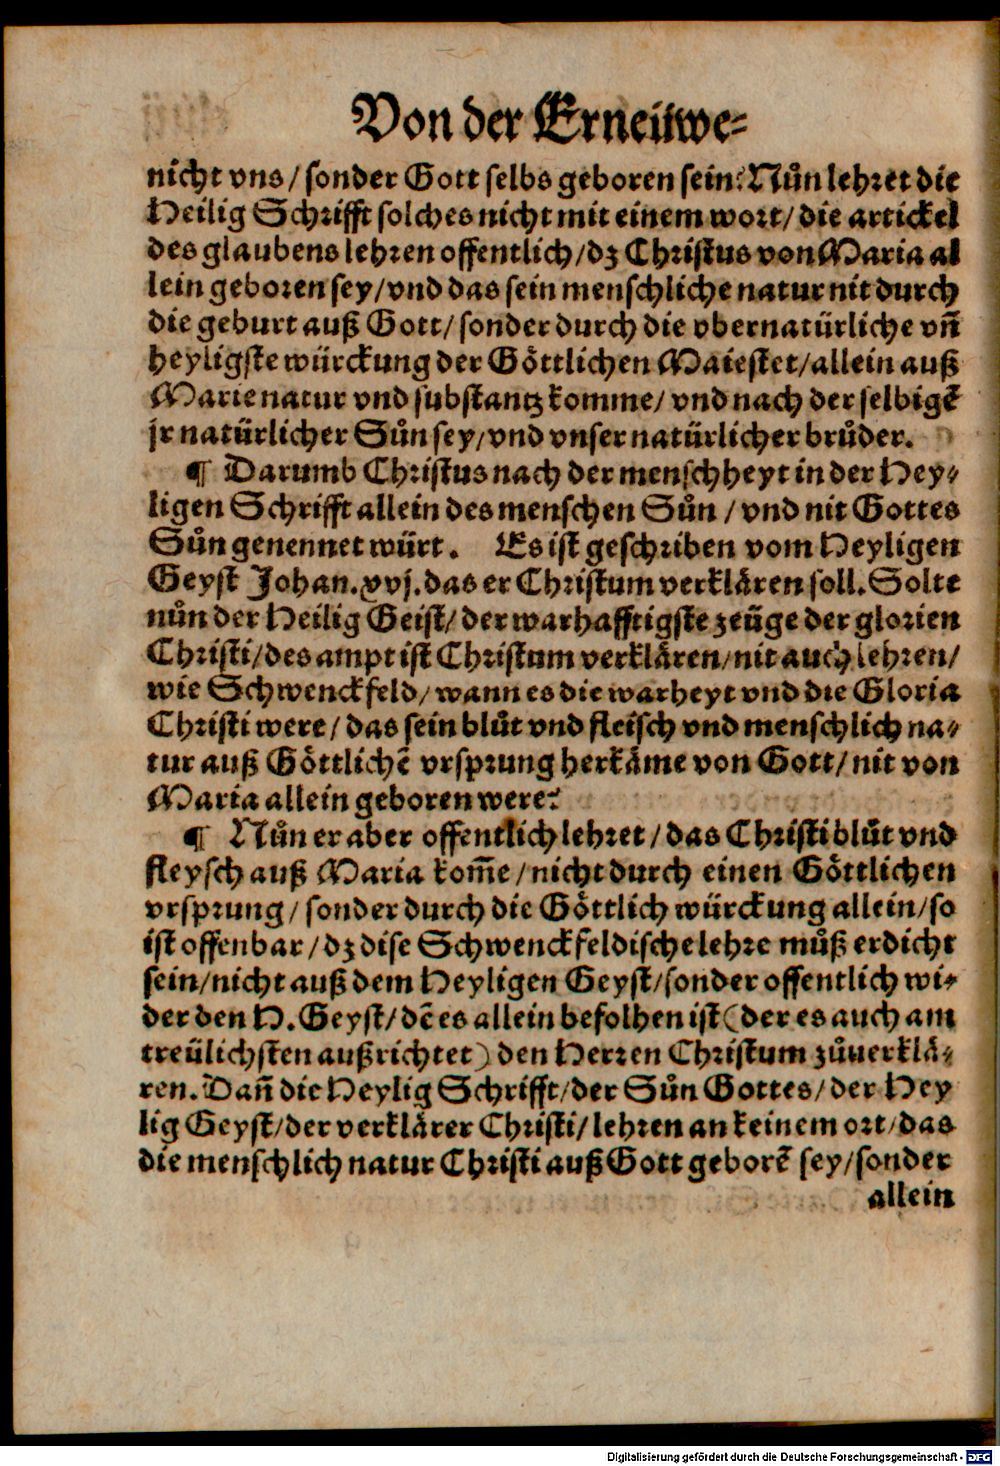 Von der Erneüwe⸗
nicht vns / sonder Gott selbs geboren sein: Nůn lehret die
Heilig Schrifft solches nicht mit einem wort / die artickel
des glaubens lehren offentlich / dz Christus von Maria al
lein geboren sey / vnd das sein menschliche natur nit durch
die geburt auß Gott / sonder durch die vbernatürliche vñ
heyligste würckung der Göttlichen Maiestet / allein auß
Marie natur vnd substantz komme / vnd nach der selbigẽ
jr natürlicher Sůn sey / vnd vnser natürlicher brůder.
¶ Darumb Christus nach der menschheyt in der Hey⸗
ligen Schrifft allein des menschen Sůn / vnd nit Gottes
Sůn genennet würt. Es ist geschriben vom Heyligen
Geyst Johan. xvj. das er Christum verklären soll. Solte
nůn der Heilig Geist / der warhafftigste zeüge der glorien
Christi / des ampt ist Christum verklären / nit auch lehren /
wie Schwenckfeld / wann es die warheyt vnd die Gloria
Christi were / das sein blůt vnd fleisch vnd menschlich na⸗
tur auß Göttlichẽ vrsprung herkäme von Gott / nit von
Maria allein geboren were?
¶ Nůn er aber offentlich lehret / das Christi blůt vnd
fleysch auß Maria kom̃e / nicht durch einen Göttlichen
vrsprung / sonder durch die Göttlich würckung allein / so
ist offenbar / dz dise Schwenckfeldische lehre můß erdicht
sein / nicht auß dem Heyligen Geyst / sonder offentlich wi⸗
der den H. Geyst / dẽ es allein befolhen ist (der es auch am
treülichsten außrichtet) den Herren Christum zůuerklä⸗
ren. Dañ die Heylig Schrifft / der Sůn Gottes / der Hey
lig Geyst / der verklärer Christi / lehren an keinem ort / das
die menschlich natur Christi auß Gott geborẽ sey / sonder
allein
Digitalisierung gefördert durch die Deutsche Forschungsgemeinschaft - DFG